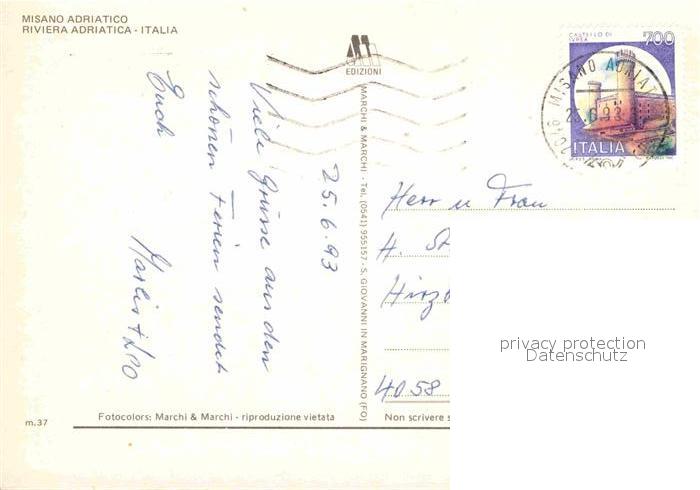 MISANO ADRIATICO
RIVIERA ADRIATICA - ITALIA
EDIZIONI
CASTELLO DI
IVREA
700
ITALIA
MISANO ADRIAT
25.6.93
MARCHI & MARCHI - Tel. (0541) 955157 - S. GIOVANNI IN MARIGNANO (FO)
25.6.93
Viele Grüsse aus den
schönen Ferien sendet
Euch
Marlis + Leo
Herr u Frau
H. St
Hirz
4058
privacy protection
Datenschutz
m.37
Fotocolors: Marchi & Marchi - riproduzione vietata
Non scrivere s